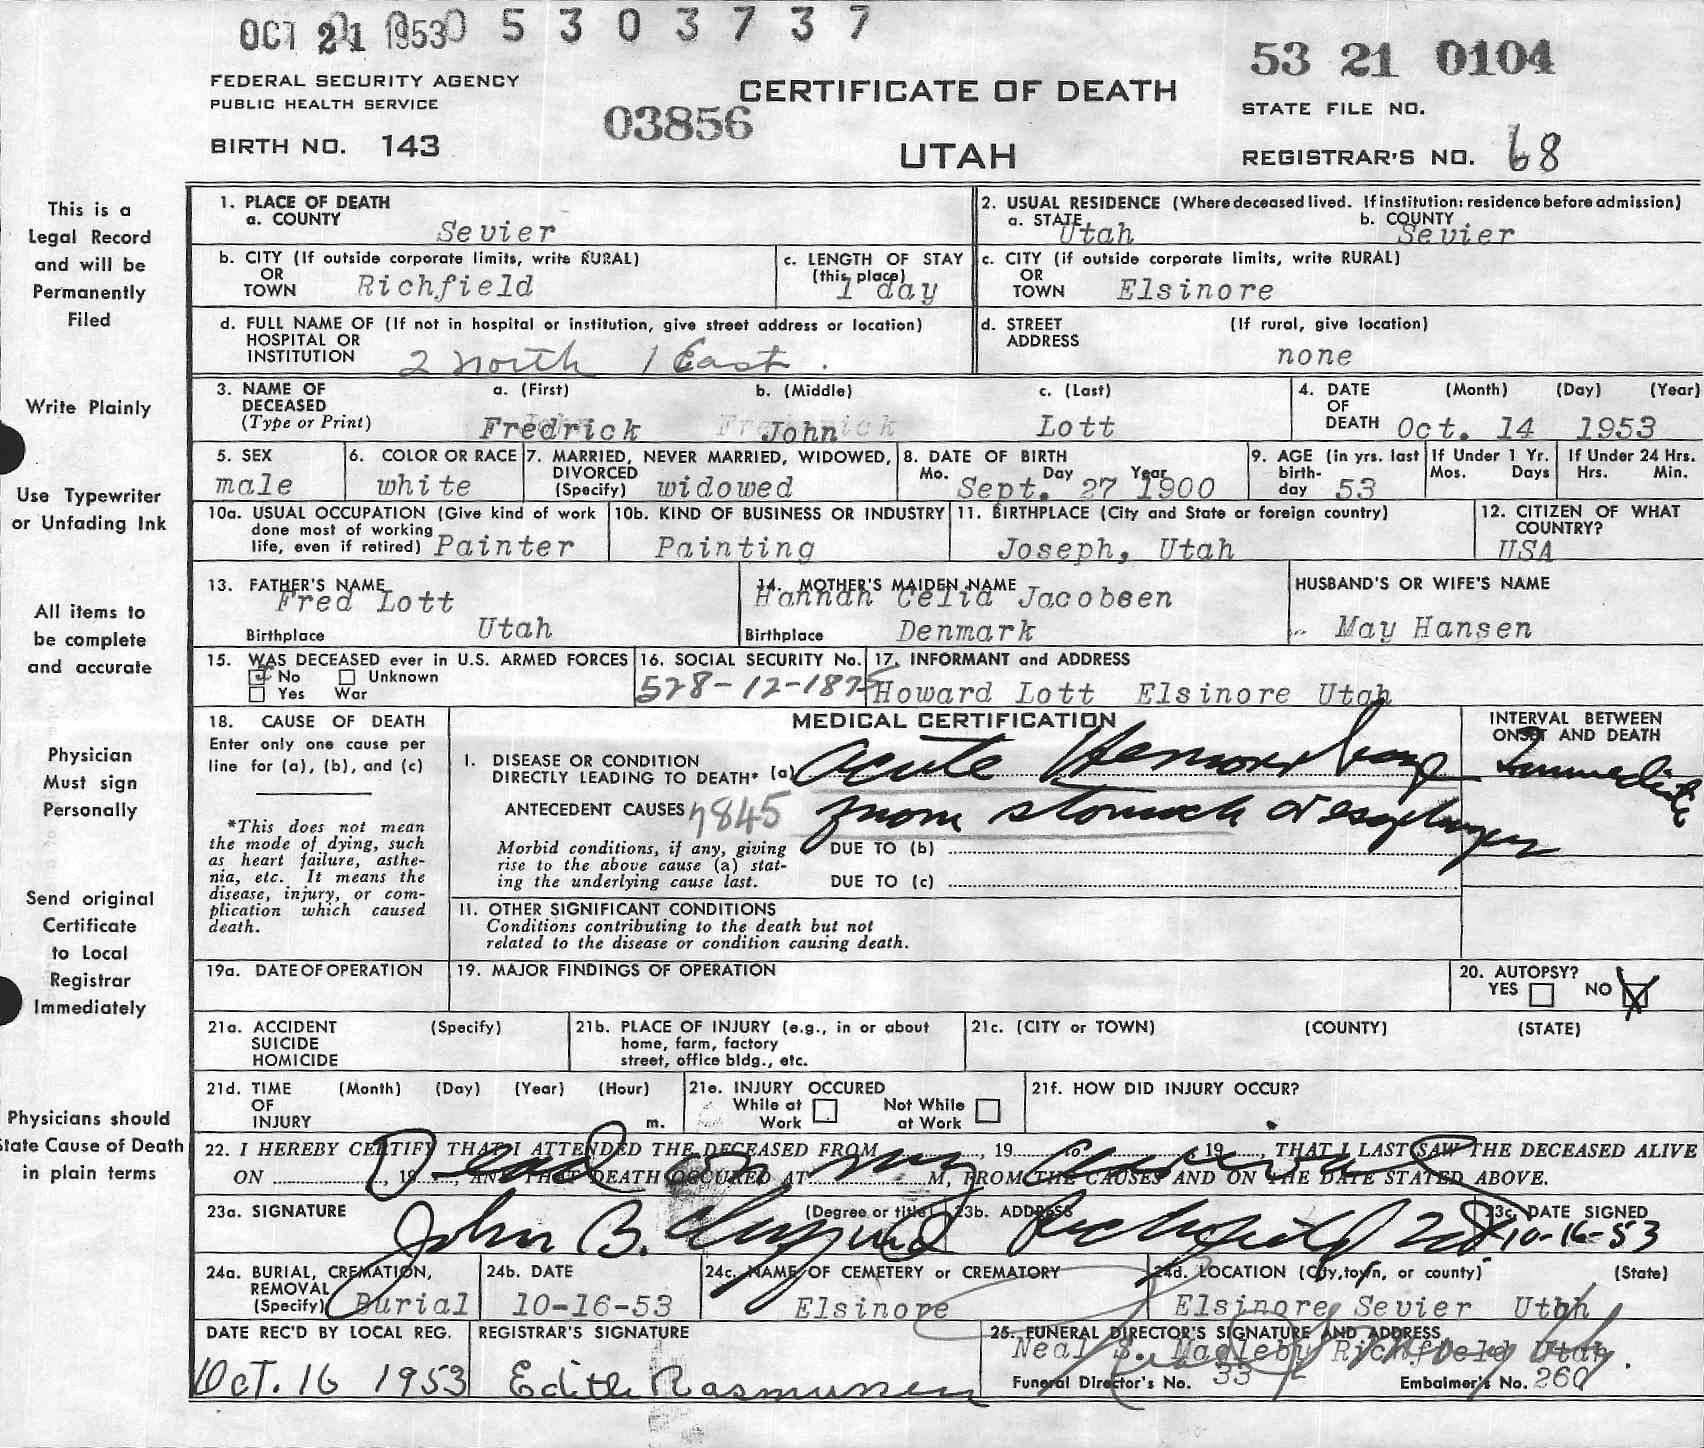 OCT 21 1953 5 3 0 3 7 3 7
FEDERAL SECURITY AGENCY
PUBLIC HEALTH SERVICE
BIRTH NO. 143
03856
CERTIFICATE OF DEATH
UTAH
53 21 0104
STATE FILE NO.
REGISTRAR'S NO. 68
This is a
Legal Record
and will be
Permanently
Filed
Write Plainly
Use Typewriter
or Unfading Ink
All items to
be complete
and accurate
Physician
Must sign
Personally
Send original
Certificate
to Local
Registrar
Immediately
Physicians should
State Cause of Death
in plain terms
1. PLACE OF DEATH
a. COUNTY Sevier
2. USUAL RESIDENCE (Where deceased lived. If institution: residence before admission)
a. STATE Utah b. COUNTY Sevier
b. CITY (If outside corporate limits, write RURAL)
OR
TOWN Richfield
c. LENGTH OF STAY
(this place)
1 day
c. CITY (if outside corporate limits, write RURAL)
OR
TOWN Elsinore
d. FULL NAME OF (If not in hospital or institution, give street address or location)
HOSPITAL OR
INSTITUTION 2 North 1 East.
d. STREET (If rural, give location)
ADDRESS none
3. NAME OF a. (First) b. (Middle) c. (Last)
DECEASED
(Type or Print) Fredrick John Lott
4. DATE (Month) (Day) (Year)
OF
DEATH Oct. 14 1953
5. SEX
male
6. COLOR OR RACE
white
7. MARRIED, NEVER MARRIED, WIDOWED,
DIVORCED
(Specify) widowed
8. DATE OF BIRTH
Mo. Day Year
Sept. 27 1900
9. AGE (in yrs. last
birth-
day 53
If Under 1 Yr.
Mos. Days
If Under 24 Hrs.
Hrs. Min.
10a. USUAL OCCUPATION (Give kind of work
done most of working
life, even if retired) Painter
10b. KIND OF BUSINESS OR INDUSTRY
Painting
11. BIRTHPLACE (City and State or foreign country)
Joseph, Utah
12. CITIZEN OF WHAT
COUNTRY?
USA
13. FATHER'S NAME
Fred Lott
Birthplace Utah
14. MOTHER'S MAIDEN NAME
Hannah Celia Jacobsen
Birthplace Denmark
HUSBAND'S OR WIFE'S NAME
May Hansen
15. WAS DECEASED ever in U.S. ARMED FORCES
No Unknown
Yes War
16. SOCIAL SECURITY No.
528-12-1875
17. INFORMANT and ADDRESS
Howard Lott Elsinore Utah
18. CAUSE OF DEATH
Enter only one cause per
line for (a), (b), and (c)
*This does not mean
the mode of dying, such
as heart failure, asthe-
nia, etc. It means the
disease, injury, or com-
plication which caused
death.
MEDICAL CERTIFICATION
I. DISEASE OR CONDITION
DIRECTLY LEADING TO DEATH* (a) Acute Hemorrhage
ANTECEDENT CAUSES 7845 from stomach or esophagus
Morbid conditions, if any, giving
rise to the above cause (a) stat-
ing the underlying cause last.
DUE TO (b)
DUE TO (c)
INTERVAL BETWEEN
ONSET AND DEATH
Immediate
11. OTHER SIGNIFICANT CONDITIONS
Conditions contributing to the death but not
related to the disease or condition causing death.
19a. DATE OF OPERATION
19. MAJOR FINDINGS OF OPERATION
20. AUTOPSY?
YES NO X
21a. ACCIDENT (Specify)
SUICIDE
HOMICIDE
21b. PLACE OF INJURY (e.g., in or about
home, farm, factory
street, office bldg., etc.
21c. (CITY or TOWN) (COUNTY) (STATE)
21d. TIME (Month) (Day) (Year) (Hour)
OF
INJURY m.
21e. INJURY OCCURED
While at Work
Not While at Work
21f. HOW DID INJURY OCCUR?
22. I HEREBY CERTIFY THAT I ATTENDED THE DECEASED FROM , 19 to , 19 , THAT I LAST SAW THE DECEASED ALIVE
Dead on my arrival
ON , 19 , AND THAT DEATH OCCURED AT M, FROM THE CAUSES AND ON THE DATE STATED ABOVE.
23a. SIGNATURE (Degree or title)
John B.
23b. ADDRESS
Richfield Ut
23c. DATE SIGNED
10-16-53
24a. BURIAL, CREMATION,
REMOVAL
(Specify) Burial
24b. DATE
10-16-53
24c. NAME OF CEMETERY or CREMATORY
Elsinore
24d. LOCATION (City, town, or county) (State)
Elsinore Sevier Utah
DATE REC'D BY LOCAL REG.
Oct. 16 1953
REGISTRAR'S SIGNATURE
Edith Rasmussen
25. FUNERAL DIRECTOR'S SIGNATURE AND ADDRESS
Neal S. Magleby Richfield Utah
Funeral Director's No. 33 Embalmer's No. 260